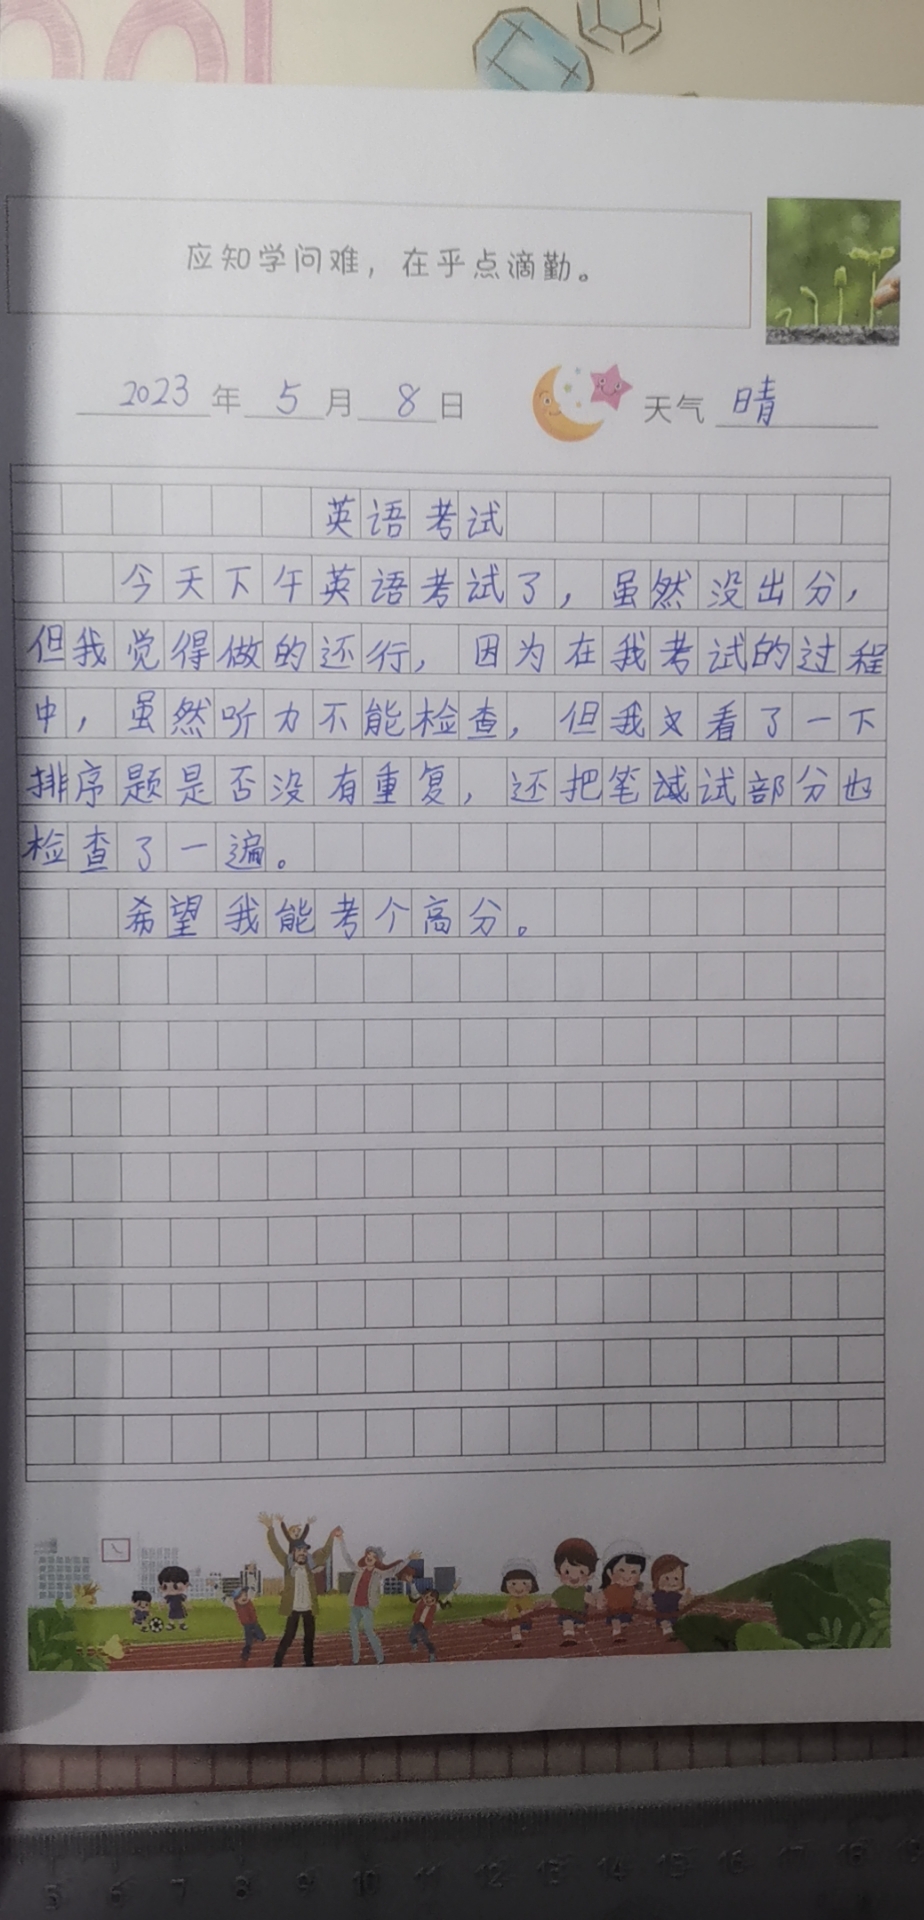 ool
应知学问难，在乎点滴勤。
2023年5月8日 天气 晴
英语考试
今天下午英语考试了，虽然没出分，
但我觉得做的还行，因为在我考试的过程
中，虽然听力不能检查，但我又看了一下
排序题是否没有重复，还把笔试部分也
检查了一遍。
希望我能考个高分。
5 6 7 8 9 10 11 12 13 14 15 16 17 18